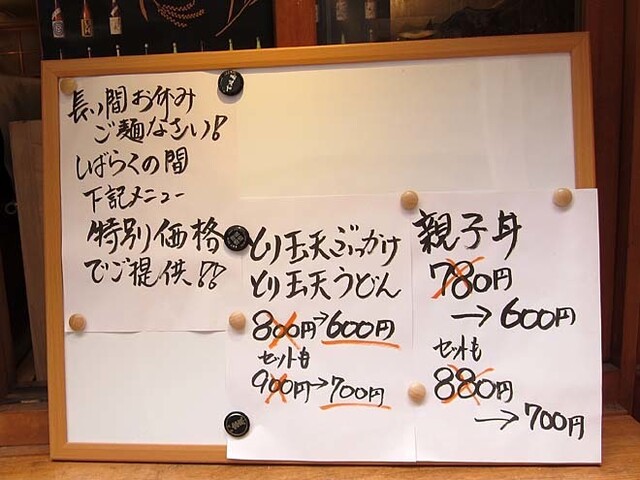 長い間お休み
ご麺なさい!
しばらくの間
下記メニュー
特別価格
でご提供!!
とり玉天ぶっかけ
とり玉天うどん
800円→600円
セットも
900円→700円
親子丼
780円
→600円
セットも
880円
→700円